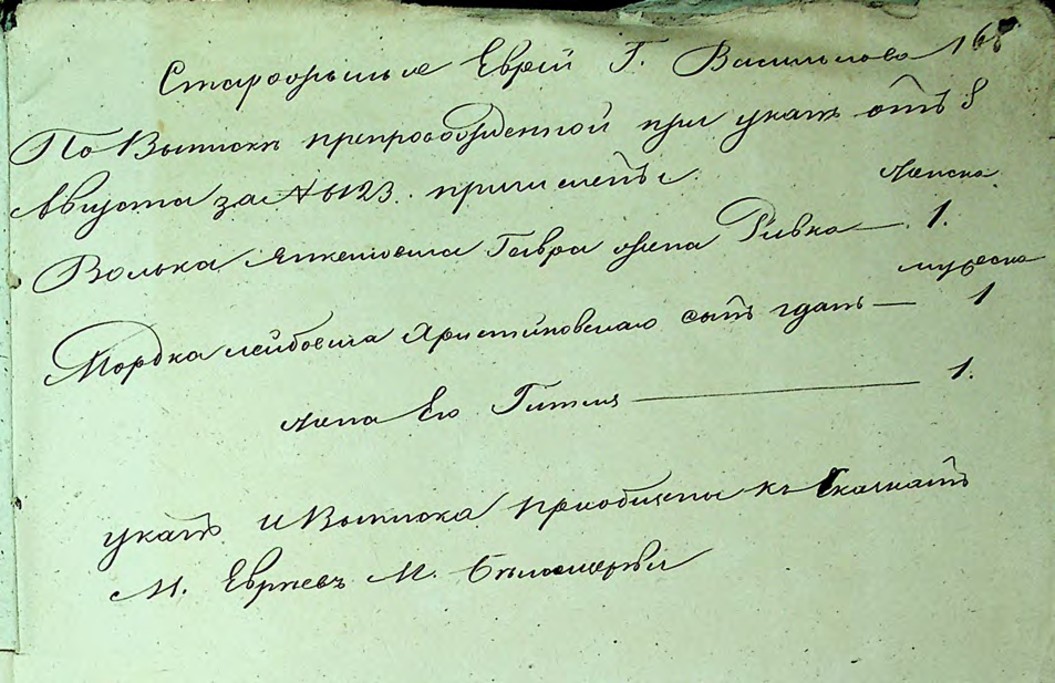 Евреи Г. Василькова 168
По Выписке препровожденной при указе отъ 8
Августа за № 6123. причислены
Женска
Волька Янкелевича Гавра жена Ривка — 1.
мужеска
Мордка Лейбовича Христиновскаго сынъ — 1
Жена Его Гитля — 1.
указъ и Выписка приобщены къ Сказкамъ
М. Евреевъ М. Белоцеркви